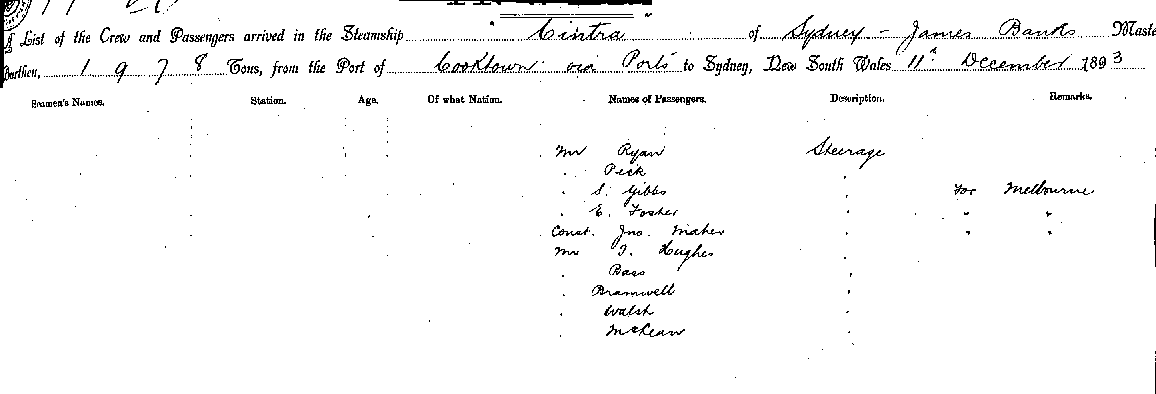 A List of the Crew and Passengers arrived in the Steamship "Cintra" of Sydney - James Banks Maste
Burthen, 1978 Tons, from the Port of Cooktown via Ports to Sydney, New South Wales 11th December 1893
Seamen's Names. Station. Age. Of what Nation. Names of Passengers. Description. Remarks.
Mr Ryan Steerage
" Peck "
" S. Gibbs " For Melbourne
" E. Foster " " "
Const. Jno. Maher " " "
Mr T. Hughes "
" Bass "
" Bramwell "
" Walsh "
" McKean "